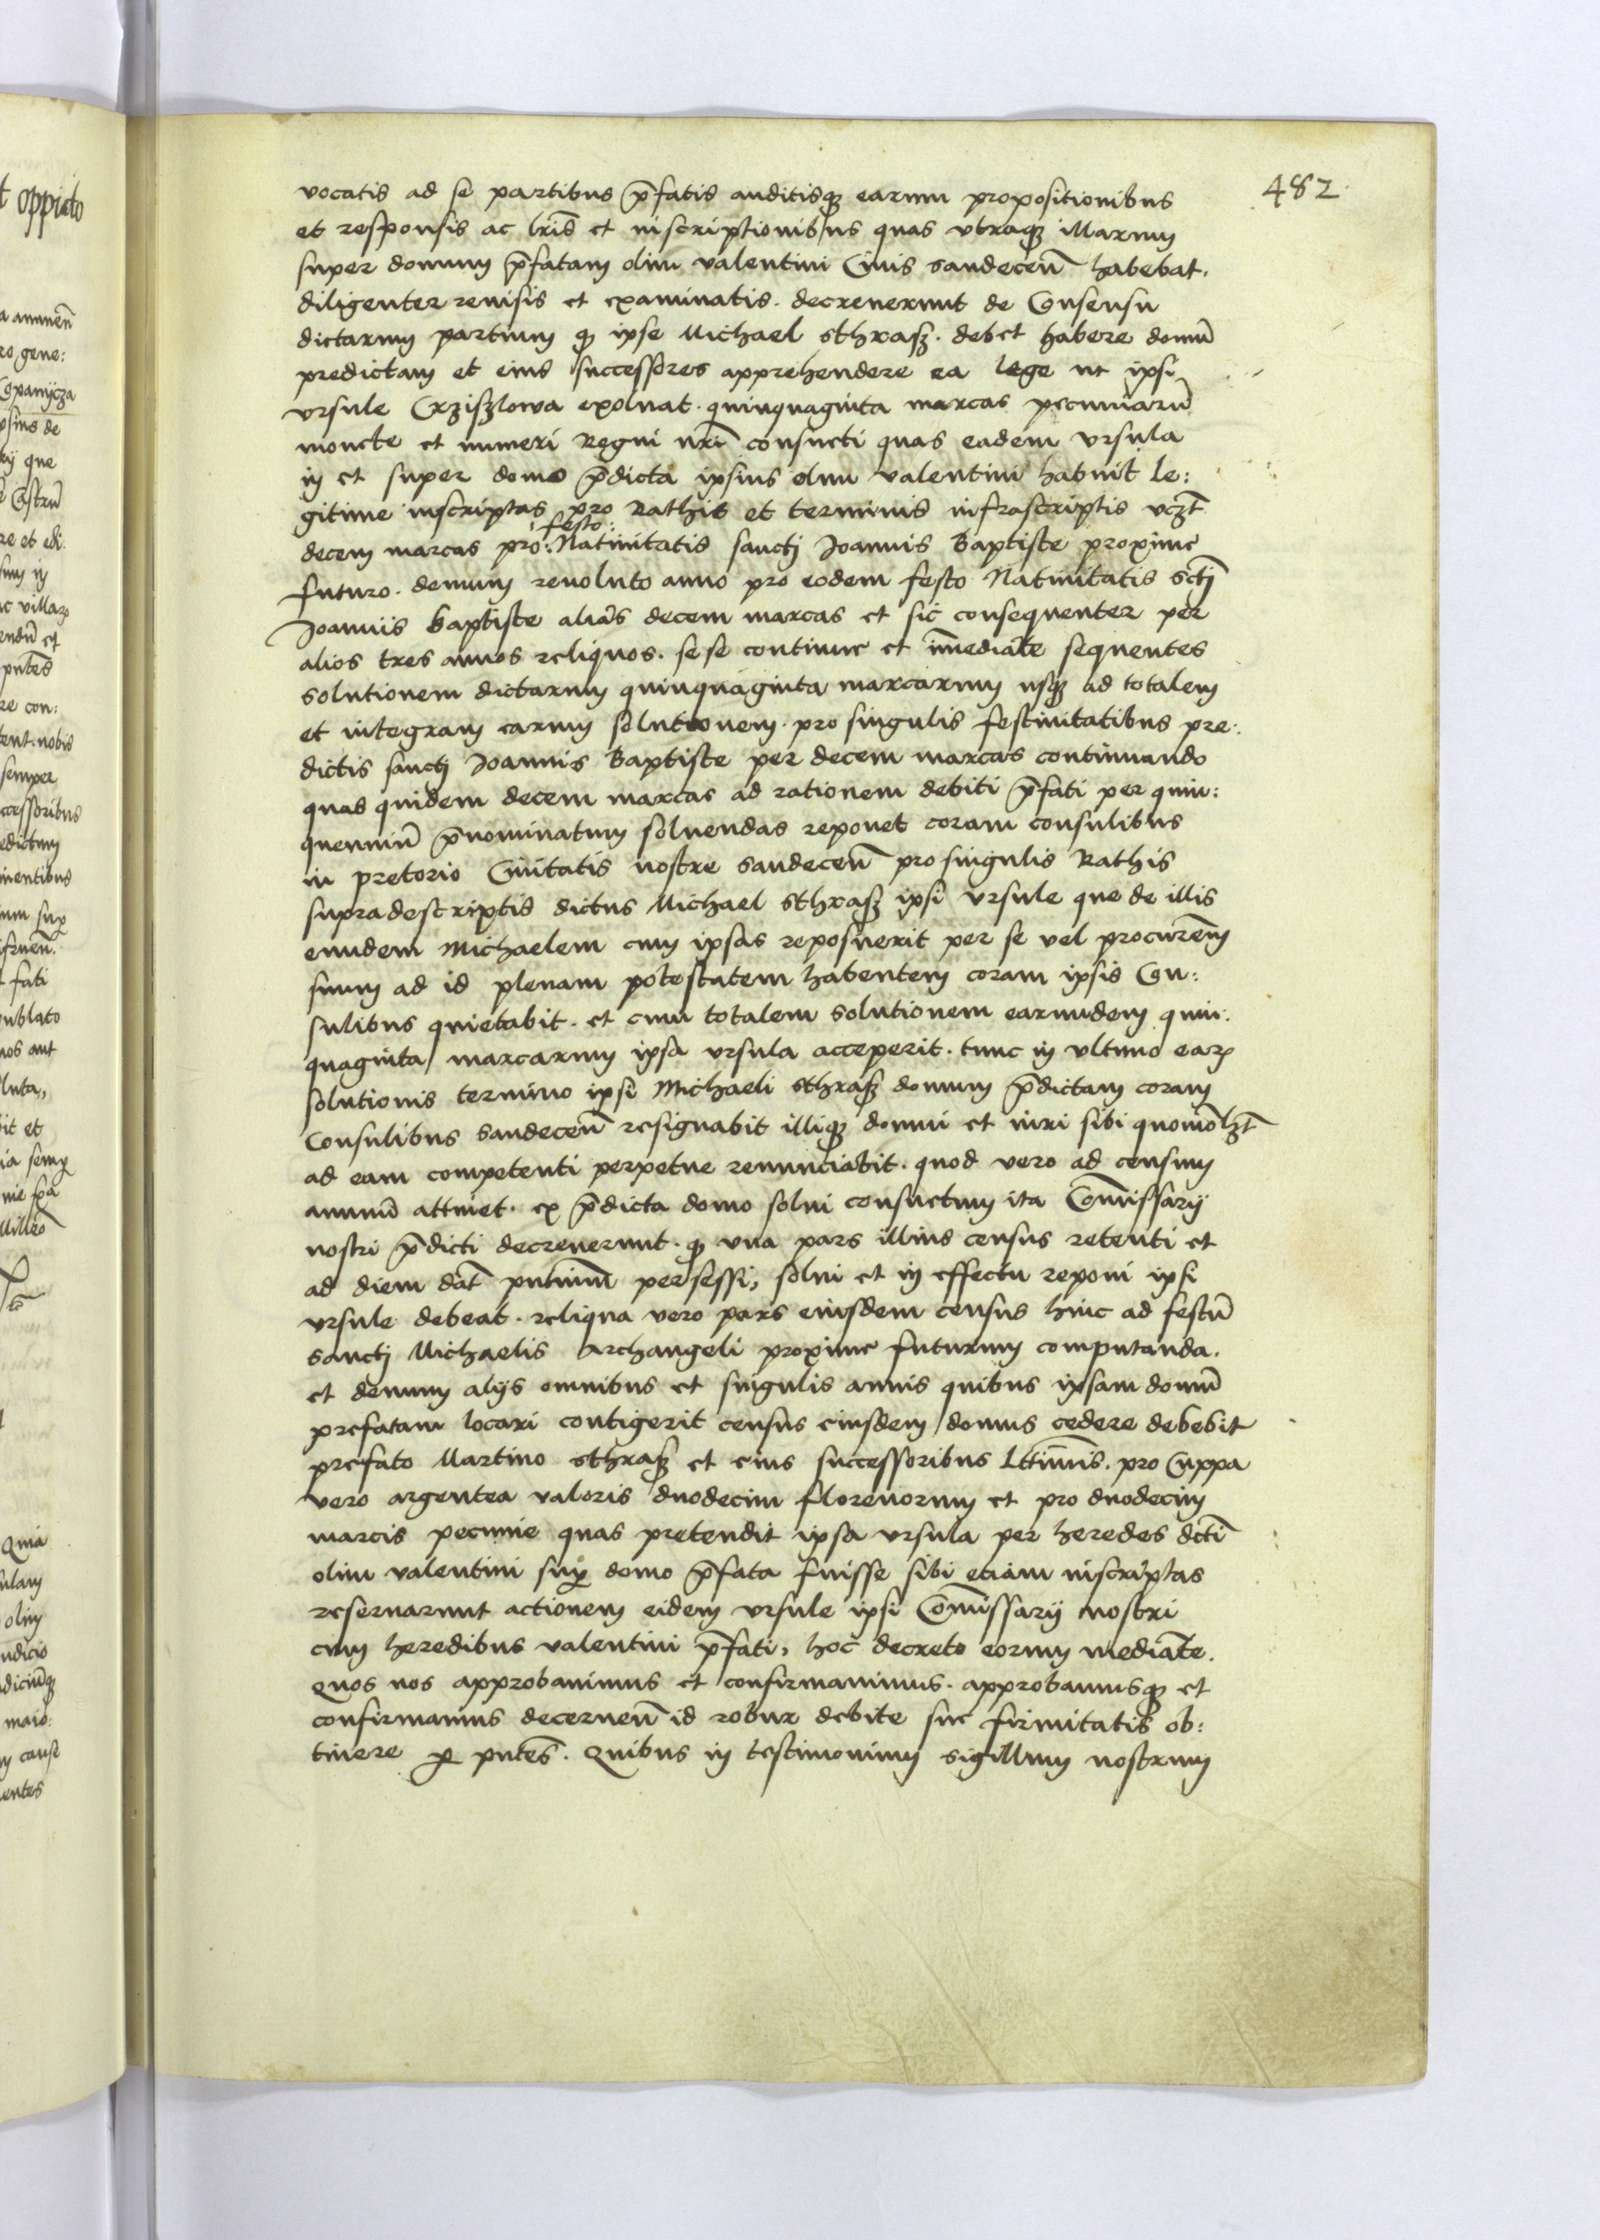 482
vocatis ad se partibus p̄fatis auditisqȝ earum propositionibus
et responsis ac lr̄is et inscriptionibus quas utraqȝ illarum
super domum p̄fatam olim valentini Civis sandeceñ habebat.
diligenter revisis et examinatis. decreverunt de Consensu
dictarum partium qȝ ipse Michael sthrasz. debet habere domū
predictam et eius successores apprehendere ea lege ut ipsi
ursule Crziszlowa exolvat. quinquaginta marcas pecuniarū
monete et numeri Regni nr̄i consueti quas eadem ursula
in et super domo p̄dicta ipsius olim valentini habuit le:
gitime inscriptas pro Rathis et terminis infrascriptis vczt̄
decem marcas pro: festo: Nativitatis sancti Joannis Baptiste proxime
futuro. demum revoluto anno pro eodem festo Nativitatis sctī
Joannis Baptiste alias decem marcas et sic consequenter per
alios tres annos reliquos. sese continue et im̄ediate sequentes
solutionem dictarum quinquaginta marcarum usqȝ ad totalem
et integram earum solutionem. pro singulis festivitatibus pre:
dictis sancti Joannis Baptiste per decem marcas continuando
quas quidem decem marcas ad rationem debiti p̄fati per quin:
quenniū p̄nominatum solvendas reponet coram consulibus
in pretorio Civitatis nostre sandeceñ pro singulis Rathis
supradescriptis dictus Michael sthrasz ipsi ursule que de illis
eundem Michaelem cum ipsas reposuerit per se vel procurēm
suum ad id plenam potestatem habentem coram ipsis Con:
sulibus quietabit. et cum totalem solutionem earundem quin:
quaginta marcarum ipsa ursula acceperit. tunc in ultimo earꝝ
solutionis termino ipsi Michaeli sthrasz domum p̄dictam coram
Consulibus sandeceñ resignabit illiqȝ domui et iuri sibi quomōlzt̄
ad eam competenti perpetue renunciabit. quod vero ad censum
annuū attinet. ex p̄dicta domo solvi consuetum ita Com̄issarij
nostri p̄dicti decreverunt. qȝ una pars illius census retenti et
ad diem dat̄ pn̄tium persessi, solvi et in effectu reponi ipsi
ursule debeat. reliqua vero pars eiusdem census hinc ad festū
sancti Michaelis Archangeli proxime futurum computanda.
et demum alijs omnibus et singulis annis quibus ipsam domū
prefatam locari contigerit census eiusdem domus cedere debebit
prefato Martino sthrasz et eius successoribus lttim̄is. pro Cuppa
vero argentea valoris duodecim florenorum et pro duodecim
marcis pecunie quas pretendit ipsa ursula per heredes dctī
olim valentini suꝑ domo p̄fata fuisse sibi etiam inscriptas
reservarunt actionem eidem ursule ipsi Com̄issarij nostri
cum heredibus valentini p̄fati, hoc decreto eorum mediate.
Quos nos approbavimus et confirmavimus. approbamusqȝ et
confirmamus decerneñ id robur debite sue firmitatis ob:
tinere ꝑ pn̄tes. Quibus in testimonium sigillum nostrum